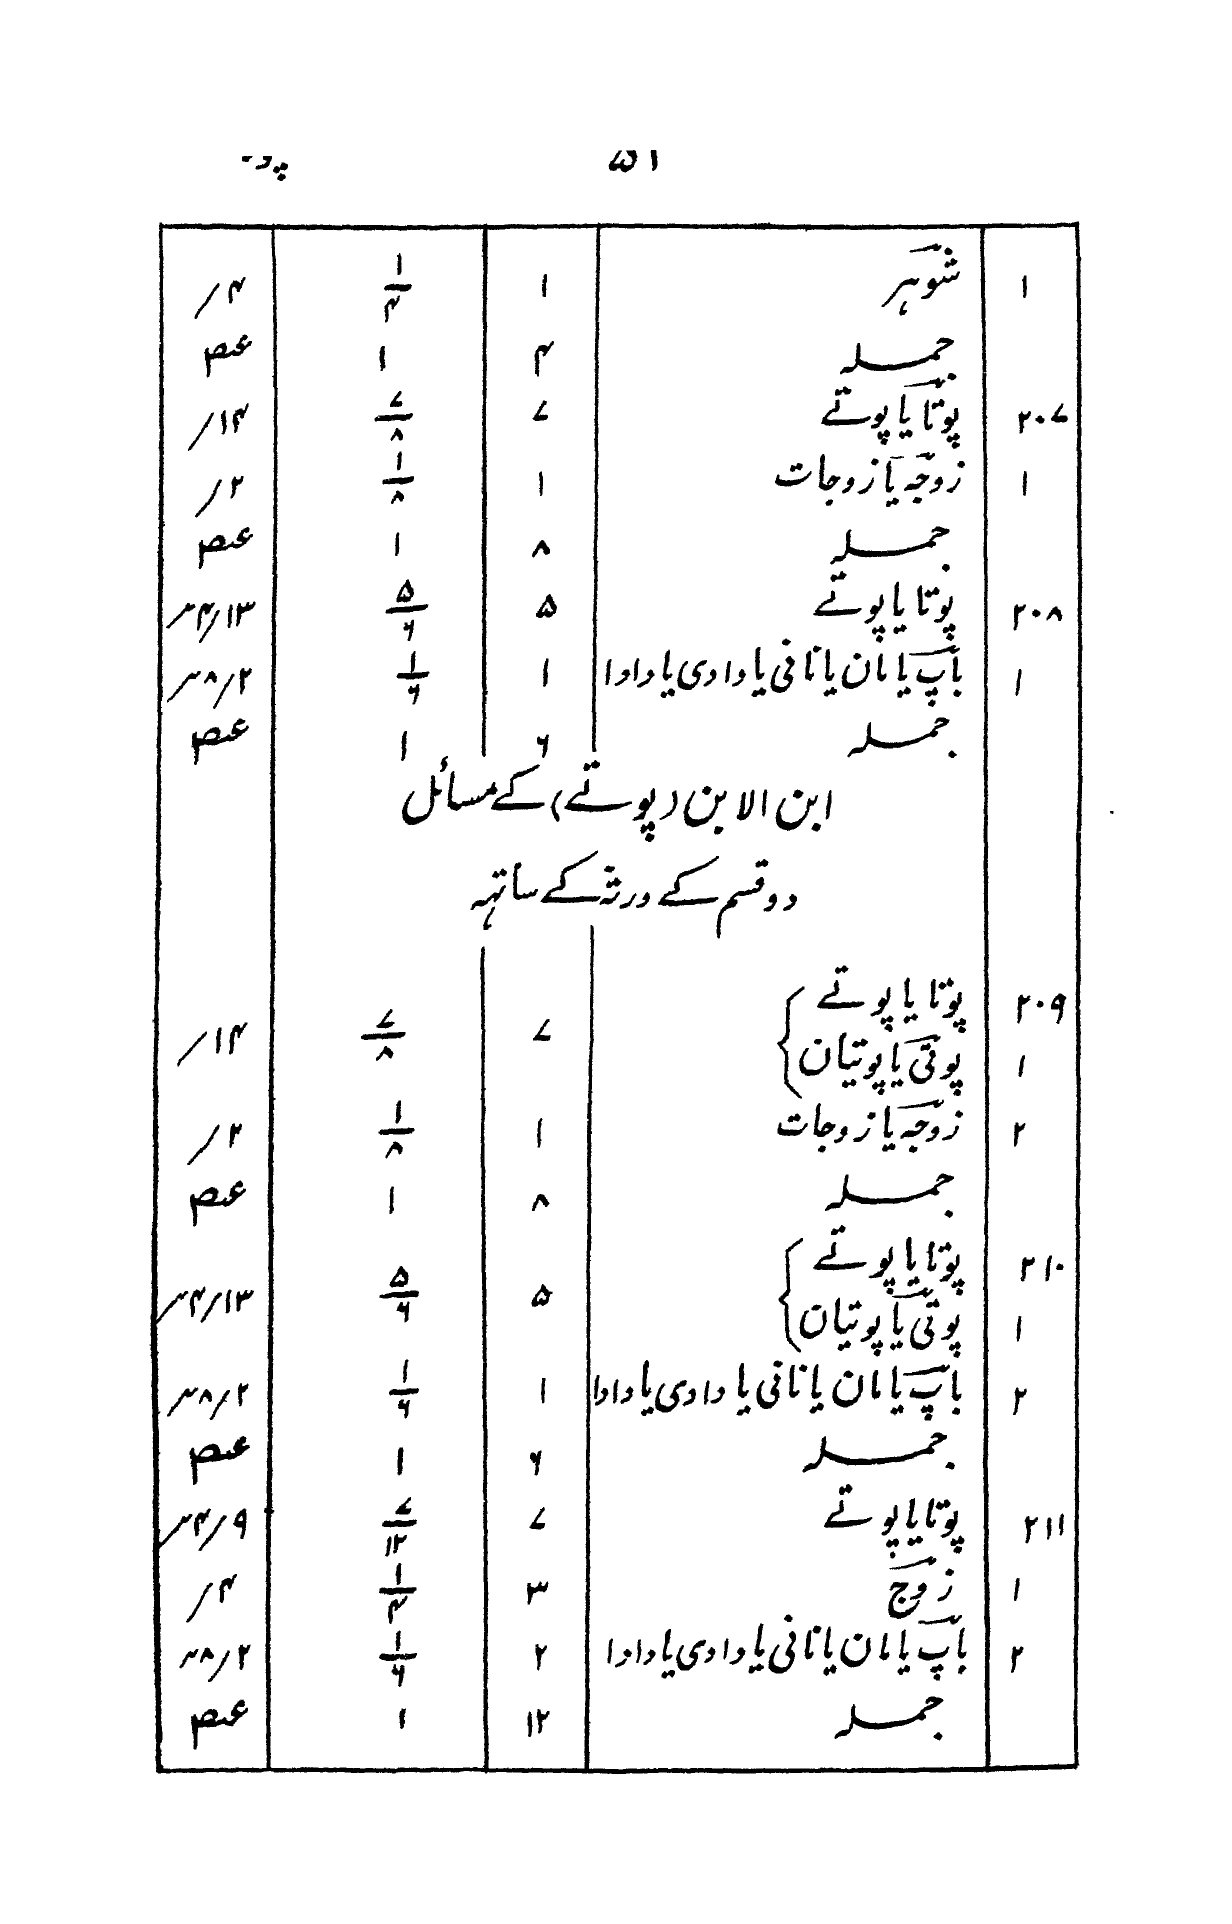 ۵۱
۱ شوہر ۱ ۱/۴ ۴/
جملہ ۴ ۱ عہ
۲۰۷ پوتا یا پوتے ۷ ۷/۸ ۱۴/
۱ زوجہ یا زوجات ۱ ۱/۸ ۲/
جملہ ۸ ۱ عہ
۲۰۸ پوتا یا پوتے ۵ ۵/۶ ۱۳/۴
۱ باپ یا ماں یا نانی یا دادی یا دادا ۱ ۱/۶ ۲/۸
جملہ ۶ ۱ عہ
ابن الابن (پوتے) کے مسائل
دو قسم کے ورثہ کے ساتہہ
۲۰۹ پوتا یا پوتے
۱ پوتی یا پوتیان ۷ ۷/۸ ۱۴/
۲ زوجہ یا زوجات ۱ ۱/۸ ۲/
جملہ ۸ ۱ عہ
۲۱۰ پوتا یا پوتے
۱ پوتی یا پوتیان ۵ ۵/۶ ۱۳/۴
۲ باپ یا مان یا نانی یا دادی یا دادا ۱ ۱/۶ ۲/۸
جملہ ۶ ۱ عہ
۲۱۱ پوتا یا پوتے ۷ ۷/۱۲ ۹/۴
۱ زوج ۳ ۱/۴ ۴/
۲ باپ یا مان یا نانی یا دادی یا دادا ۲ ۱/۶ ۲/۸
جملہ ۱۲ ۱ عہ